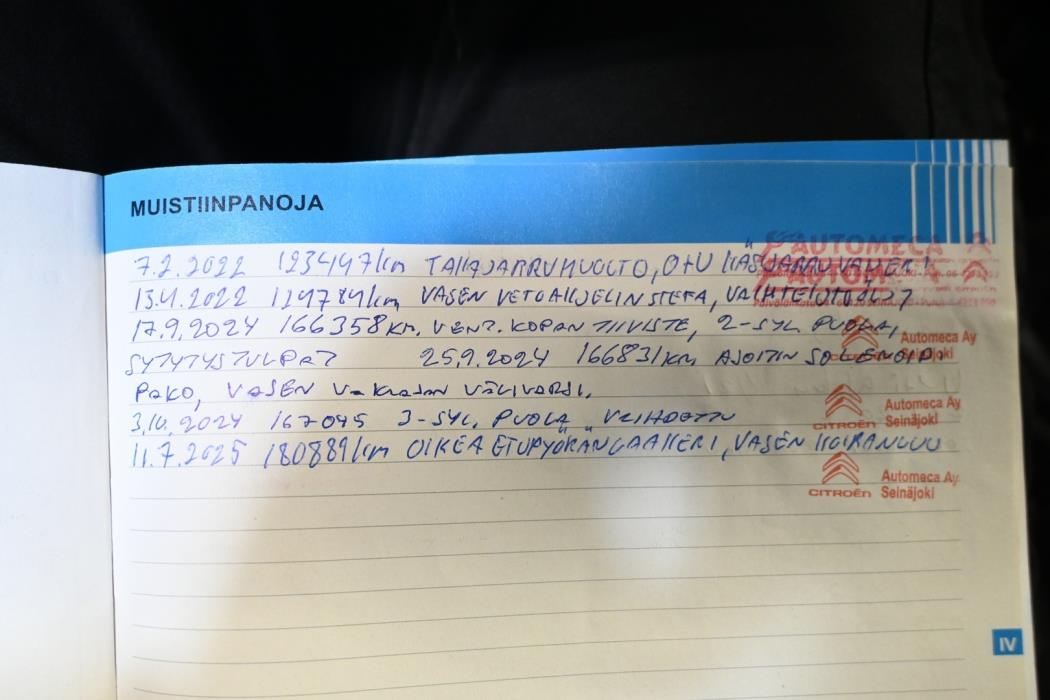 MUISTIINPANOJA
AUTOMECA
7.2.2022 123447km TAKAJARRUHUOLTO, O+V KÄSIJARRUVAIJERI
13.4.2022 124784km VASEN VETOAKSELIN STEFA,
17.9.2024 166358KM. VENT. KOPAN TIIVISTE, 2-SYL PUOLA,
Automeca Ay
SYTYTYSTULPAT 25.9.2024 166831km AJOITIN SOLENOIDI
Seinäjoki
PAKO, VASEN Vakaajan VÄLIVARSI.
3.10.2024 167045 3-SYL. PUOLA VAIHDETTU
CITROËN Automeca Ay Seinäjoki
11.7.2025 180889km OIKEA ETUPYÖRÄNLAAKERI, VASEN KOIRANLUU
CITROËN Automeca Ay Seinäjoki
IV